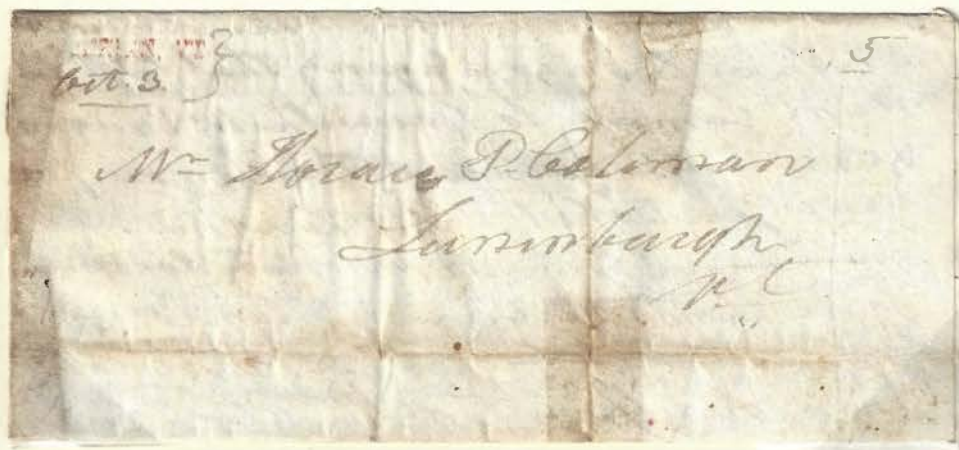 Oct. 3
5
Mr Horace P. Coleman
Lunenburgh